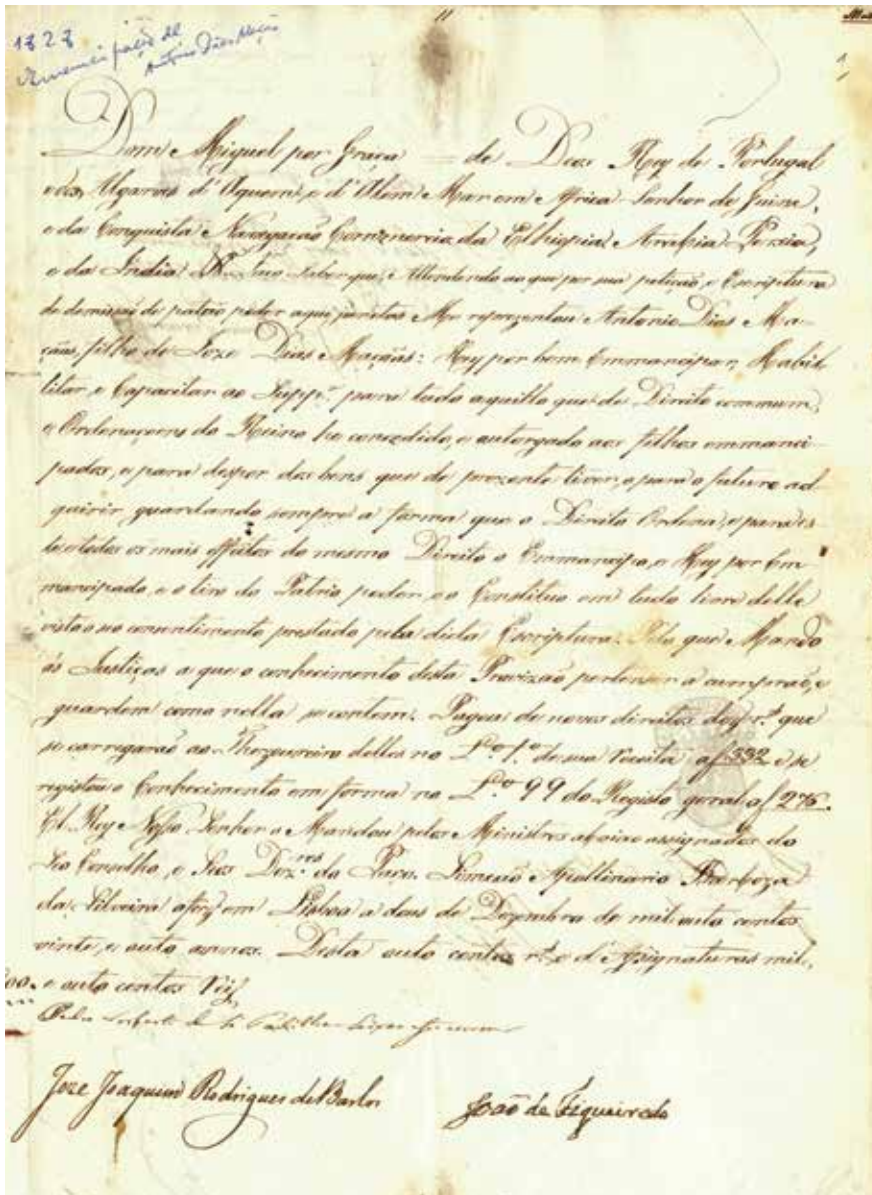 1828
Emancipação de
Antonio Dias Mação
Dom Miguel por Graça de Deos Rey de Portugal
e dos Algarves d'Aquem, e d'Alem Mar em Africa Senhor de Guine,
e da Conquista Navegação Commercio da Ethiopia Arabia Persia,
e da India &c. Faço saber que, Attendendo ao que por sua petição, e Escriptura
de demissão de patrio poder aqui juntas Me reprezentou Antonio Dias Ma-
çãas, filho de Joze Dias Maçãas: Hey por bem Emmancipar, Habil-
litar, e Capacitar ao Supp.e para tudo aquillo que de Direito commum,
e Ordenaçoens do Reino he concedido, e outorgado aos filhos emmanci-
pados, e para despor dos bens que de prezente tiver, e para o futuro ad-
quirir guardando sempre a forma que o Direito Ordena, e para es-
te e todos os mais effeitos do mesmo Direito o Emmancipo, e Hey por Em-
mancipado, e o tiro do Patrio poder, e o Constituo em tudo livre delle
visto o seo consentimento prestado pela dicta Escriptura. Pelo que Mando
ás Justiças a que o conhecimento desta Provizaõ pertenser a cumpraõ, e
guardem como nella se contem. Pagou de novos direitos r.s que
se carregaraõ ao Thezoureiro delles no L.o 1.o de sua Receita a f 332 e se
registou o Conhecimento em forma no L.o 99 do Registo geral a f 276.
El Rey Nosso Senhor o Mandou pelos Ministros abaixo assignados do
Seo Conselho, e Seos Dez.res do Paço. Simeaõ Apollinario Barboza
da Silveira a fez em Lisboa a dous de Dezembro de mil outo centos
vinte, e outo annos. Desta outo centos r.s e d'Assignaturas mil,
e outo centos reis
Joze Joaquim Rodrigues de Bastos
João de Figueiredo